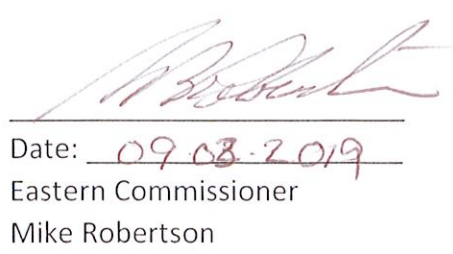 Date: 09.03.2019
Eastern Commissioner
Mike Robertson